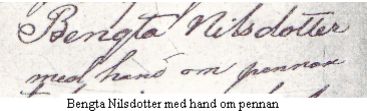 Bengta Nilsdotter
med hand om pennan
Bengta Nilsdotter med hand om pennan